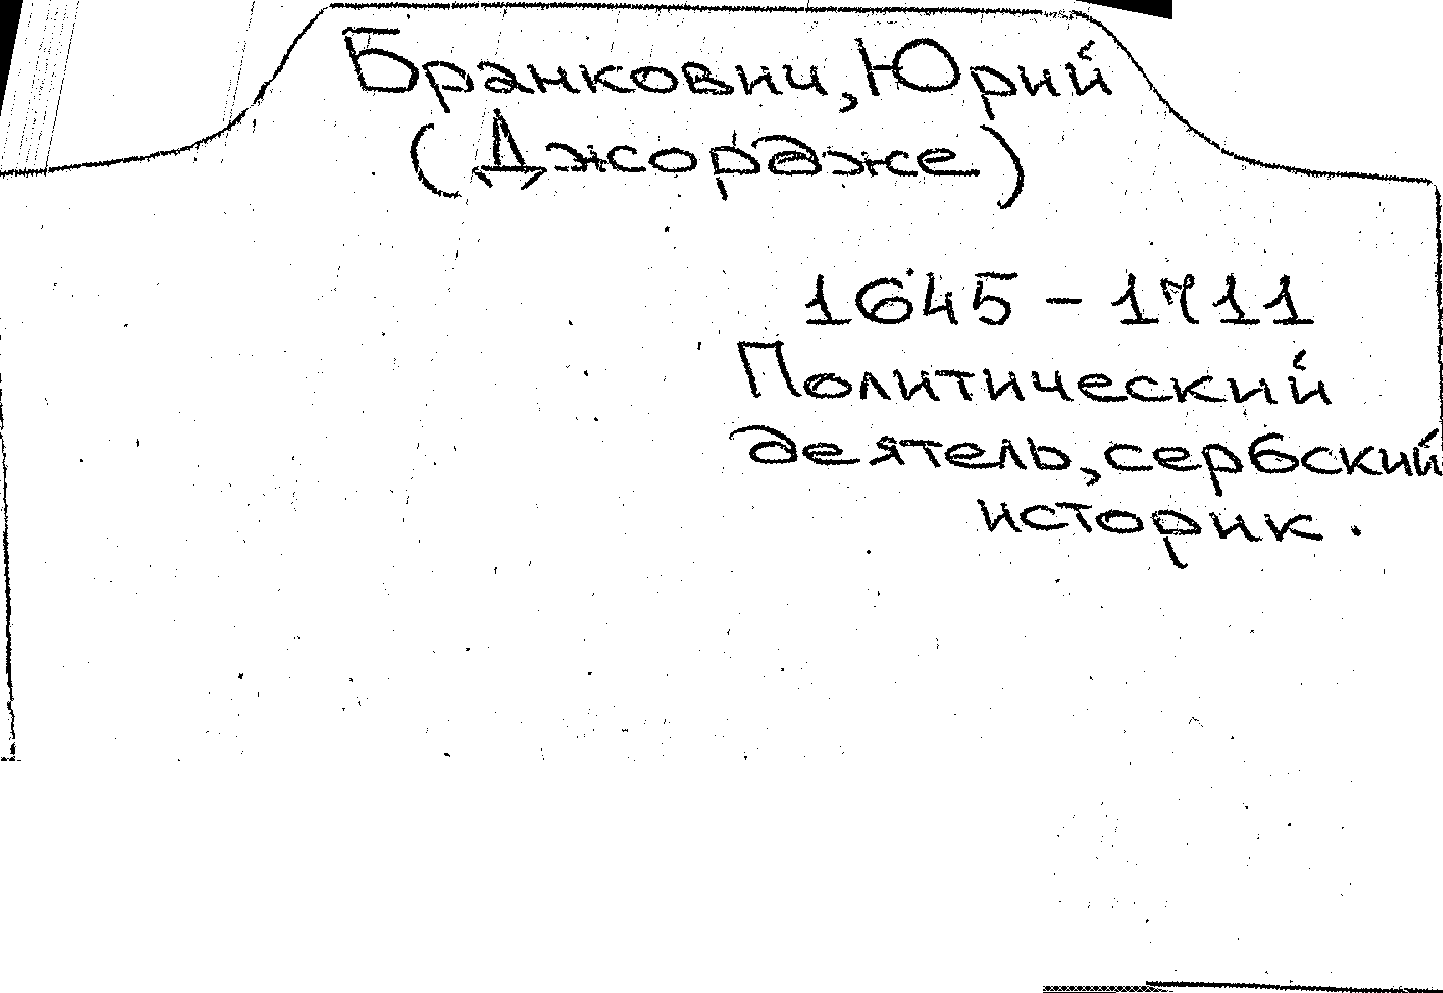 Бранкович, Юрий
(Джорджже)
1645 - 1711
Политический
деятель, сербский
историк.